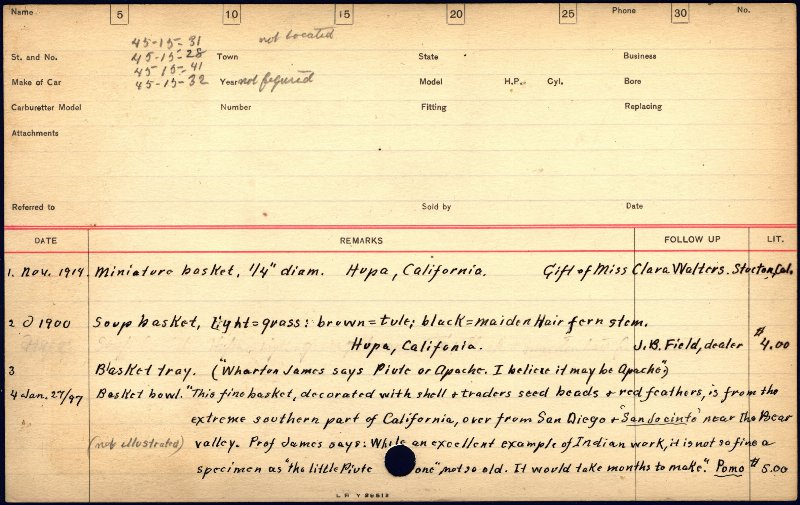 Name 5 10 15 20 25 Phone 30 No.
45-15-31 not Located
St. and No. 45-15-28 Town State Business
45 15-41
Make of Car 45-15-32 Year not figured Model H.P. Cyl. Bore
Carburetter Model Number Fitting Replacing
Attachments
Referred to Sold by Date
DATE REMARKS FOLLOW UP LIT.
1. Nov. 1914. Miniature basket, 1/4" diam. Hupa, California. Gift of Miss Clara Walters. Stocton, Cal.
2 1900 Soup basket, light=grass: brown=tule; black=maiden Hair fern stem.
Hupa, Califonia. J.B. Field, dealer $4.00
3 Blasket tray. ("Wharton James says Piute or Apache. I believe it may be Apache")
4 Jan. 27/97 Basket bowl. "This fine basket, decorated with shell + traders seed beads + red feathers, is from the
extreme southern part of California, over from San Diego + "San Jocinto" near the Bear
(not illustrated) valley. Prof James says: While an excellent example of Indian work, it is not so fine a
specimen as "the little Piute one" not so old. It would take months to make". Pomo $5.00
L B Y 25513